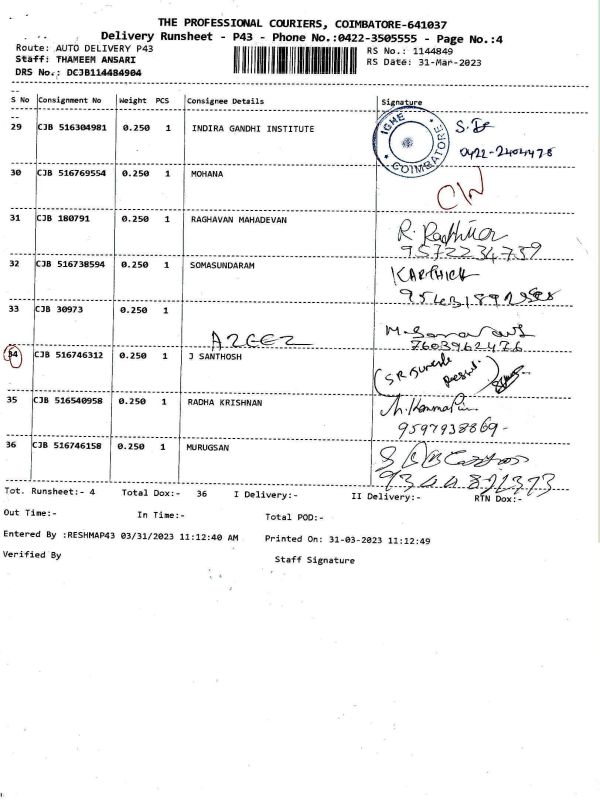 THE PROFESSIONAL COURIERS, COIMBATORE-641037
Delivery Runsheet - P43 - Phone No.:0422-3505555 - Page No.:4
Route: AUTO DELIVERY P43 RS No.: 1144849
Staff: THAMEEM ANSARI RS Date: 31-Mar-2023
DRS No.: DCJB114484904
S No Consignment No Weight PCS Consignee Details Signature
29 CJB 516304981 0.250 1 INDIRA GANDHI INSTITUTE
IGHE COIMBATORE
0422-2404478
30 CJB 516769554 0.250 1 MOHANA
CW
31 CJB 180791 0.250 1 RAGHAVAN MAHADEVAN
9572234759
32 CJB 516738594 0.250 1 SOMASUNDARAM KARTHICK
33 CJB 30973 0.250 1
AZEEZ
7603962476
34 CJB 516746312 0.250 1 J SANTHOSH
35 CJB 516540958 0.250 1 RADHA KRISHNAN
9597938869-
36 CJB 516746158 0.250 1 MURUGSAN
Tot. Runsheet:- 4 Total Dox:- 36 I Delivery:- II Delivery:- RTN Dox:-
Out Time:- In Time:- Total POD:-
Entered By :RESHMAP43 03/31/2023 11:12:40 AM Printed On: 31-03-2023 11:12:49
Verified By Staff Signature